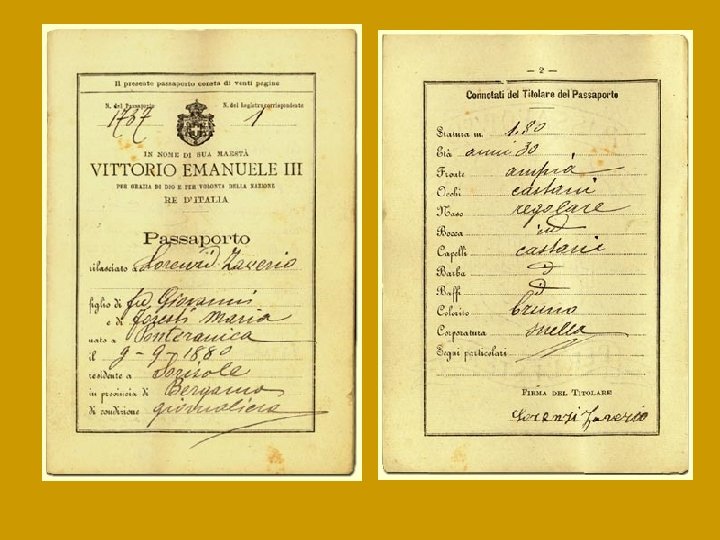 Il presente passaporto consta di venti pagine
N. del Passaporto N. del Registro corrispondente
1767 1
IN NOME DI SUA MAESTÀ
VITTORIO EMANUELE III
PER GRAZIA DI DIO E PER VOLONTÀ DELLA NAZIONE
RE D'ITALIA
Passaporto
rilasciato a Lorenzi Zaverio
figlio di fu Giovanni
e di Foresti Maria
nato a Ponteranica
il 9-9-1880
residente a Sorisole
in provincia di Bergamo
di condizione giornaliera
— 2 —
Connotati del Titolare del Passaporto
Statura m. 1.80
Età anni 30
Fronte ampia
Occhi castani
Naso regolare
Bocca id
Capelli castani
Barba id
Baffi id
Colorito bruno
Corporatura snella
Segni particolari
FIRMA DEL TITOLARE
Lorenzi Zaverio